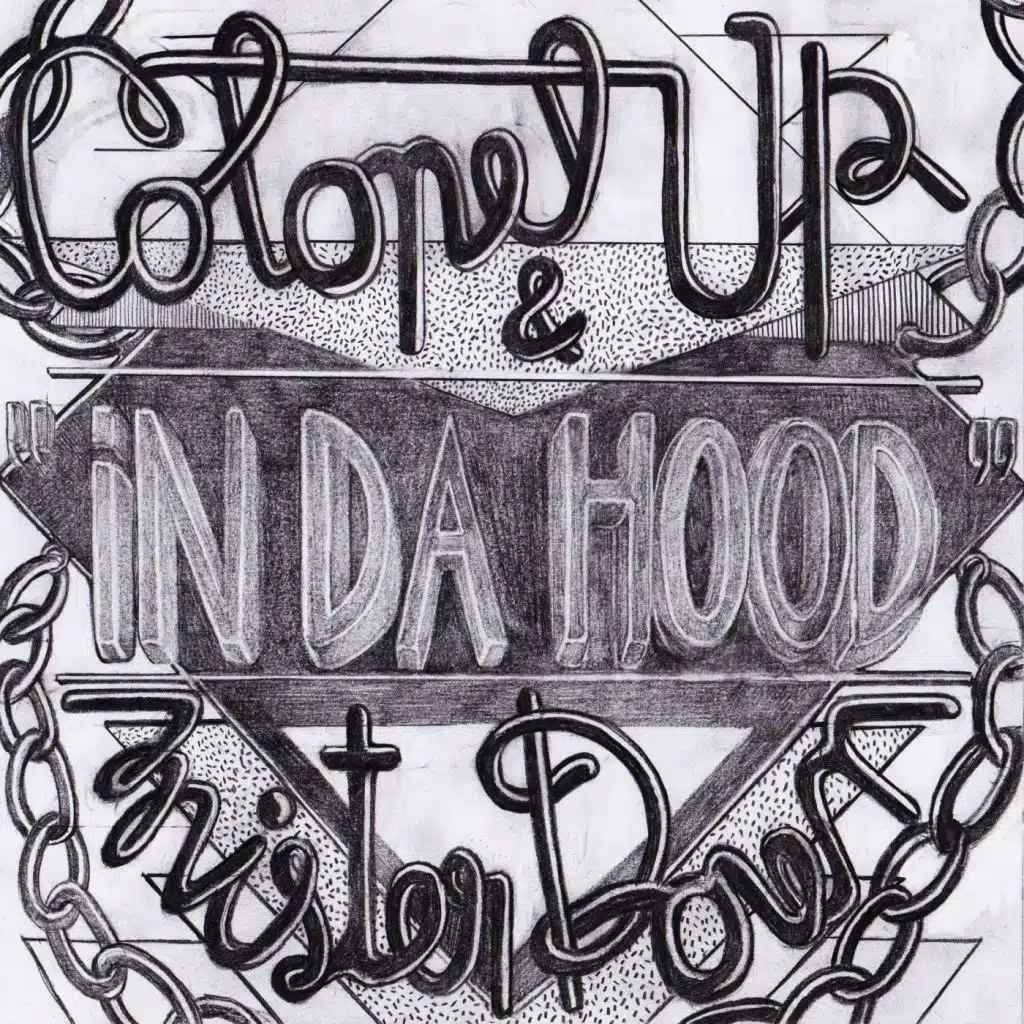 Colonel Up
&
"iN DA HOOD"
Mister Down